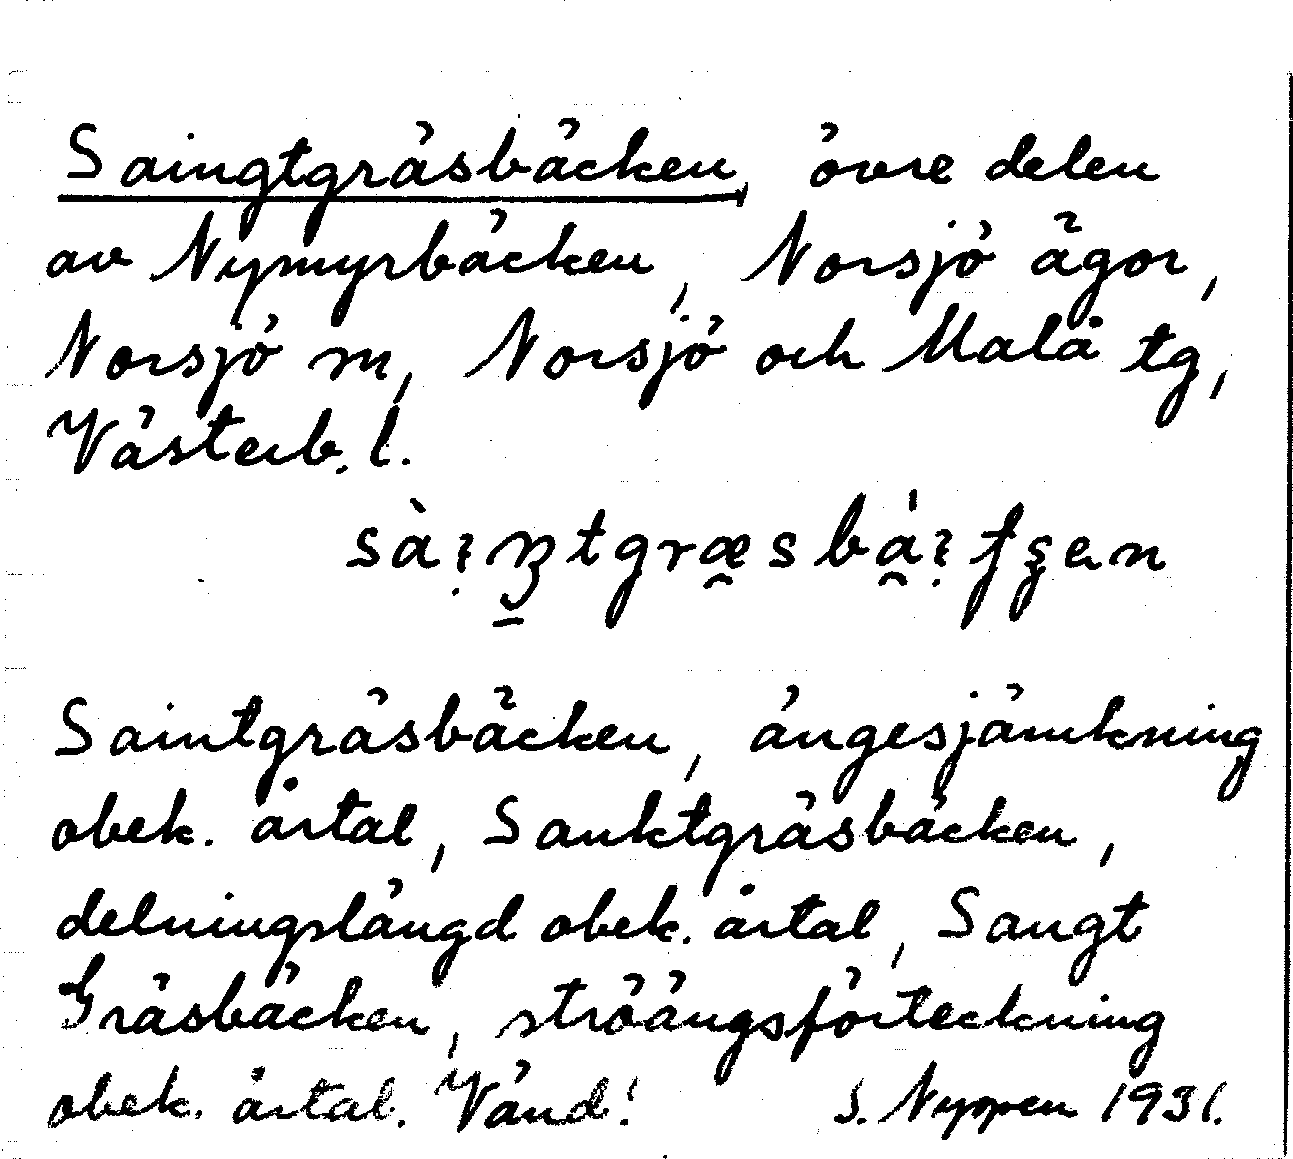 Saingtgräsbäcken, övre delen
av Nymyrbäcken, Norsjö ägor,
Norsjö m, Norsjö och Malå tg,
Västerb. l.
Saintgräsbäcken, ängesjämkning
obek. årtal, Sanktgräsbäcken,
delningslängd obek. årtal, Sangt
Gräsbäcken, ströängsförteckning
obek. årtal. Vänd! S. Nyppen 1931.